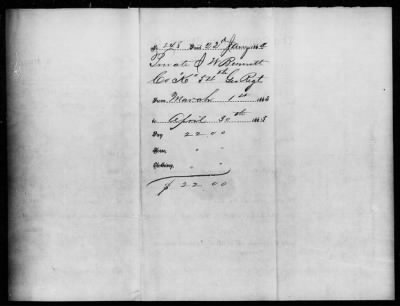 No 248 Paid 22d Jany 1864
Private J W Bennett
Co "K" 54th Ga Regt
From March 1st 1863
to April 30th 1863
Pay 22 00
Horse, " "
Clothing, " "
$ 22 00